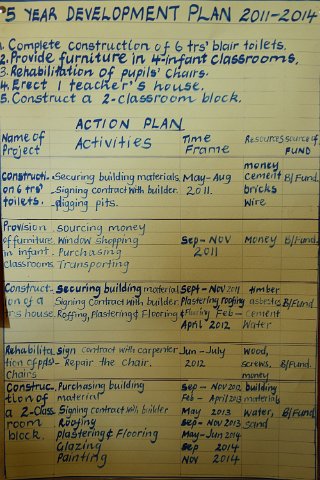 5 YEAR DEVELOPMENT PLAN 2011-2014
1. Complete construction of 6 trs' blair toilets.
2. Provide furniture in 4-infant classrooms.
3. Rehabilitation of pupils' chairs.
4. Erect 1 teacher's house.
5. Construct a 2-classroom block.
ACTION PLAN
Name of Project Activities Time Frame Resources source of FUND
Constructi- on 6 trs' toilets.
- Securing building materials
- Signing contract with builder.
- digging pits.
May-Aug 2011.
money cement bricks wire
B/Fund
Provision of furniture in infant classrooms
sourcing money
Window shopping
Purchasing
Transporting
Sep-Nov 2011
Money
B/Fund.
Construct- ion of a trs house.
Securing building material
Signing Contract with builder
Roffing, Plastering & Flooring
Sept-Nov 2011
Plastering roofing
& fluring Feb-
April 2012
timber
asbestos
cement
Water
B/Fund.
Rehabilita tion of pupils' Chairs
Sign Contract with carpenter
- Repair the chair.
Jun-July 2012
Wood, screws, money
B/Fund.
Construc. tion of a 2-Class room block.
Purchasing building material
Signing Contract with builder
Roofing
plastering & Flooring
Glazing
Painting
Sep - Nov 2012
Feb - April 2013
May 2013
Sep-Nov 2013
May-Jun 2014
Sep 2014
Nov 2014
building materials
Water,
sand
B/Fund